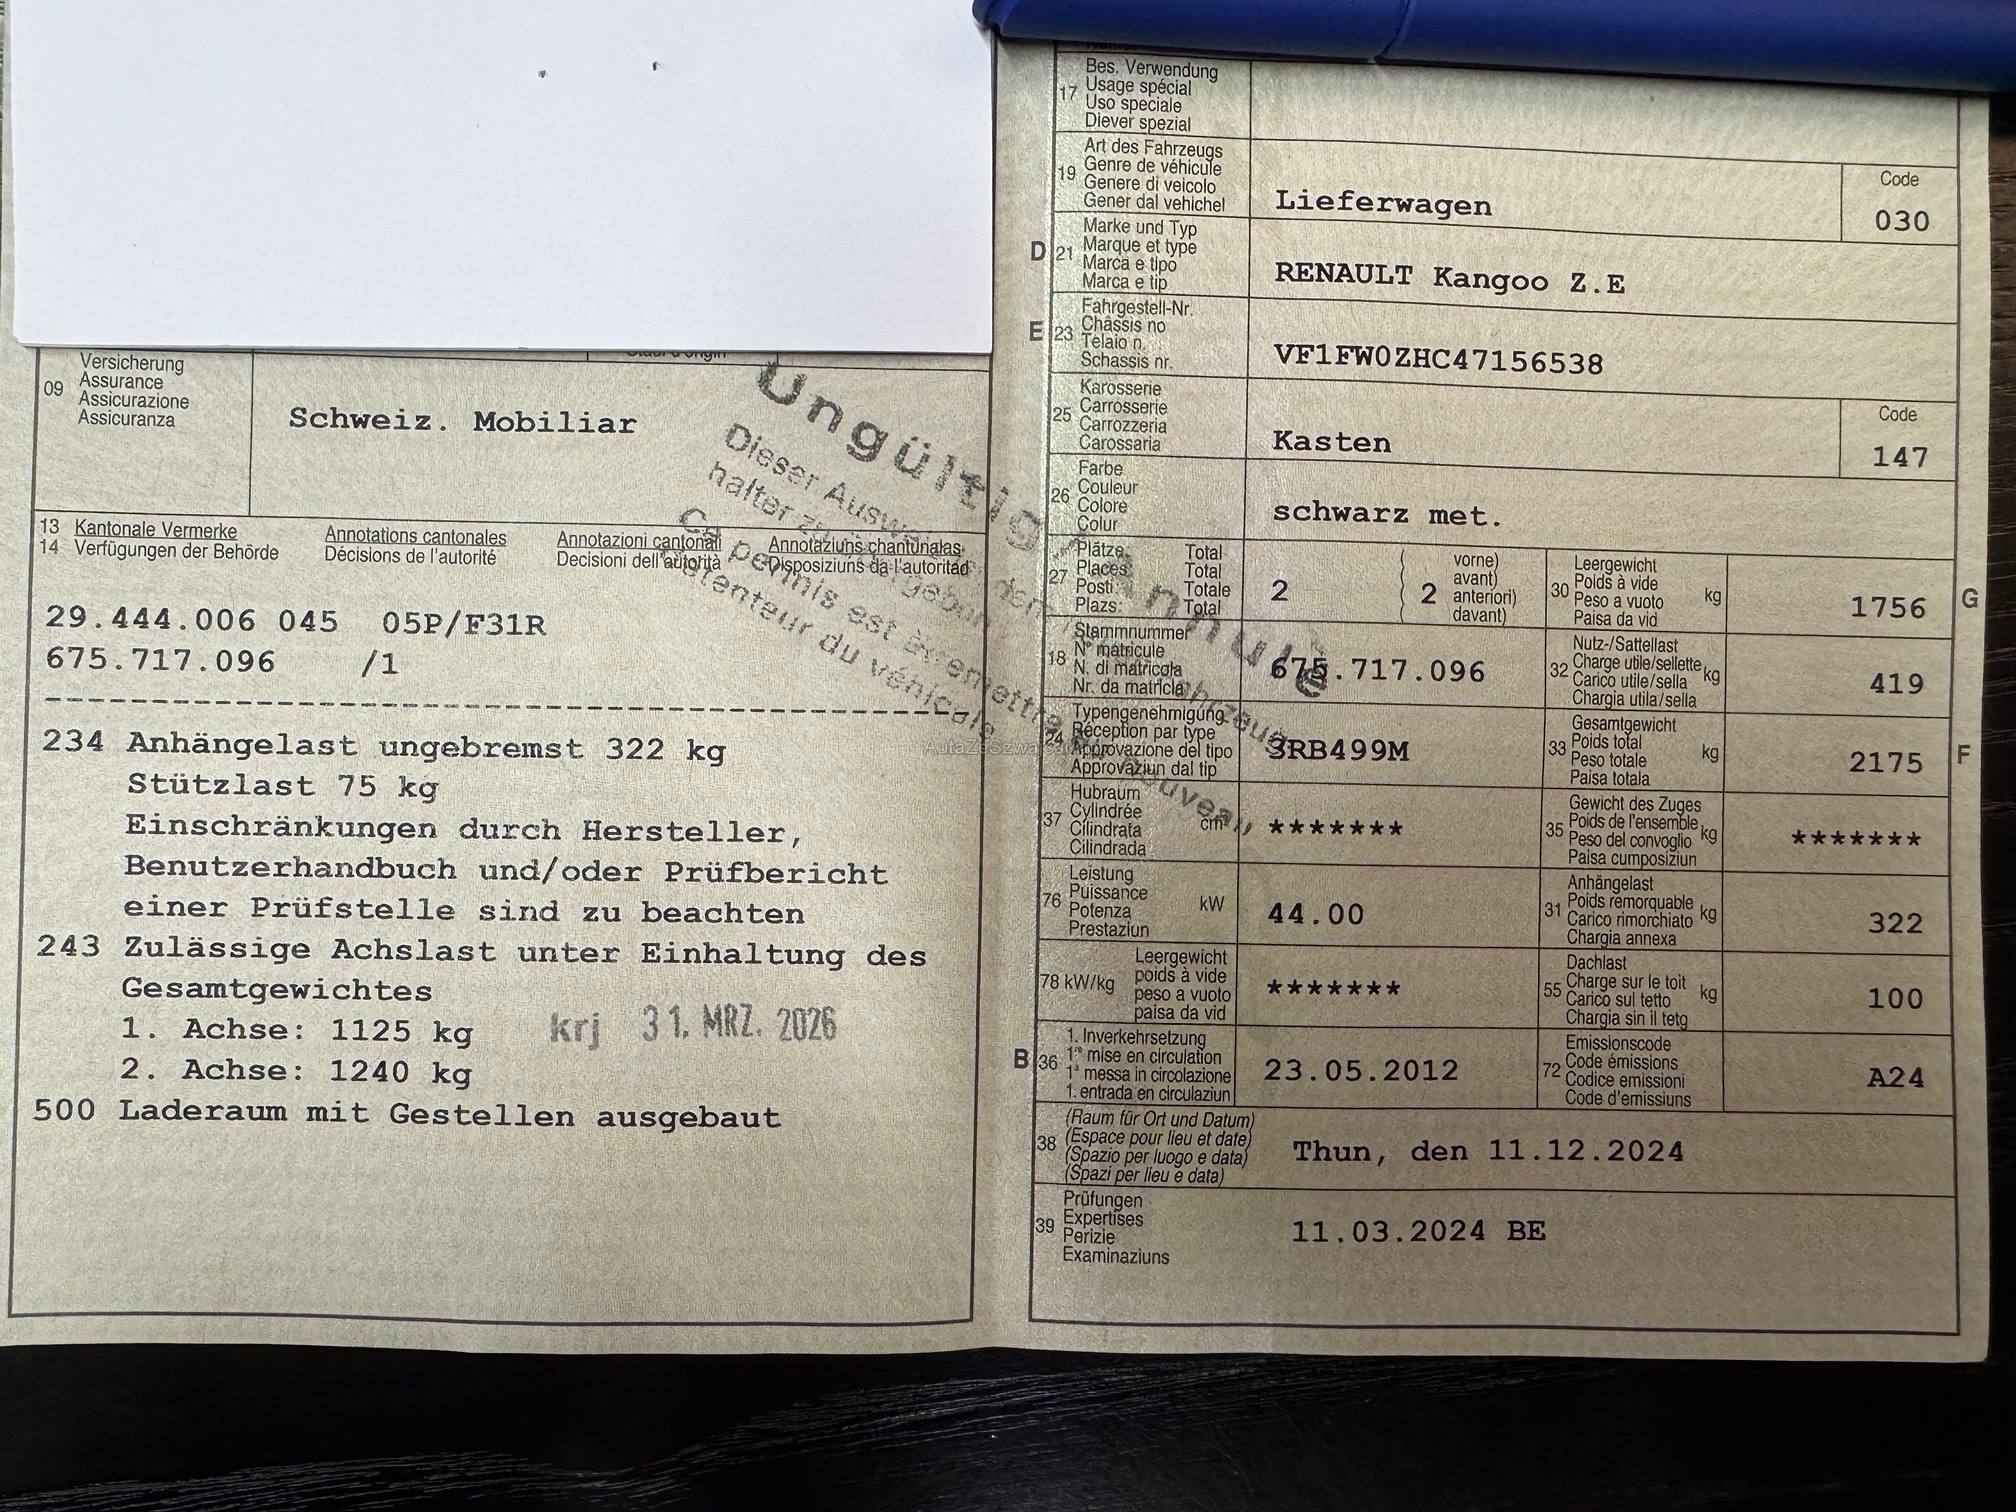 09 Versicherung
Assurance
Assicurazione
Assicuranza
Schweiz. Mobiliar
Ungültig Annulé
Dieser Ausweis
halter
Ce permis est à remettre nouveau
détenteur du véhicule
13 Kantonale Vermerke Annotations cantonales Annotazioni cantonali Annotaziuns chantunalas
14 Verfügungen der Behörde Décisions de l'autorité Decisioni dell'autorità Disposiziuns da l'autoritad
29.444.006 045 05P/F31R
675.717.096 /1
234 Anhängelast ungebremst 322 kg
Stützlast 75 kg
Einschränkungen durch Hersteller,
Benutzerhandbuch und/oder Prüfbericht
einer Prüfstelle sind zu beachten
243 Zulässige Achslast unter Einhaltung des
Gesamtgewichtes
1. Achse: 1125 kg
krj 31. MRZ. 2026
2. Achse: 1240 kg
500 Laderaum mit Gestellen ausgebaut
17 Bes. Verwendung
Usage spécial
Uso speciale
Diever spezial
19 Art des Fahrzeugs
Genre de véhicule
Genere di veicolo
Gener dal vehichel
Lieferwagen
Code
030
D 21 Marke und Typ
Marque et type
Marca e tipo
Marca e tip
RENAULT Kangoo Z.E
E 23 Fahrgestell-Nr.
Châssis no
Telaio n.
Schassis nr.
VF1FW0ZHC47156538
25 Karosserie
Carrosserie
Carrozzeria
Carossaria
Kasten
Code
147
26 Farbe
Couleur
Colore
Colur
schwarz met.
27 Plätze: Total
Places: Total
Posti: Totale
Plazs: Total
2 ( 2 vorne)
avant)
anteriori)
davant)
30 Leergewicht
Poids à vide
Peso a vuoto
Paisa da vid
kg
1756
G
18 Stammnummer
N° matricule
N. di matricola
Nr. da matricla
675.717.096
32 Nutz-/Sattellast
Charge utile/sellette
Carico utile/sella
Chargia utila/sella
kg
419
24 Typengenehmigung
Réception par type
Approvazione del tipo
Approvaziun dal tip
3RB499M
33 Gesamtgewicht
Poids total
Peso totale
Paisa totala
kg
2175
F
37 Hubraum
Cylindrée
Cilindrata
Cilindrada
cm³
*******
35 Gewicht des Zuges
Poids de l'ensemble
Peso del convoglio
Paisa cumposiziun
kg
*******
76 Leistung
Puissance
Potenza
Prestaziun
kW
44.00
31 Anhängelast
Poids remorquable
Carico rimorchiato
Chargia annexa
kg
322
78 kW/kg Leergewicht
poids à vide
peso a vuoto
paisa da vid
*******
55 Dachlast
Charge sur le toit
Carico sul tetto
Chargia sin il tetg
kg
100
B 36 1. Inverkehrsetzung
1re mise en circulation
1a messa in circolazione
1. entrada en circulaziun
23.05.2012
72 Emissionscode
Code émissions
Codice emissioni
Code d'emissiuns
A24
38 (Raum für Ort und Datum)
(Espace pour lieu et date)
(Spazio per luogo e data)
(Spazi per lieu e data)
Thun, den 11.12.2024
39 Prüfungen
Expertises
Perizie
Examinaziuns
11.03.2024 BE